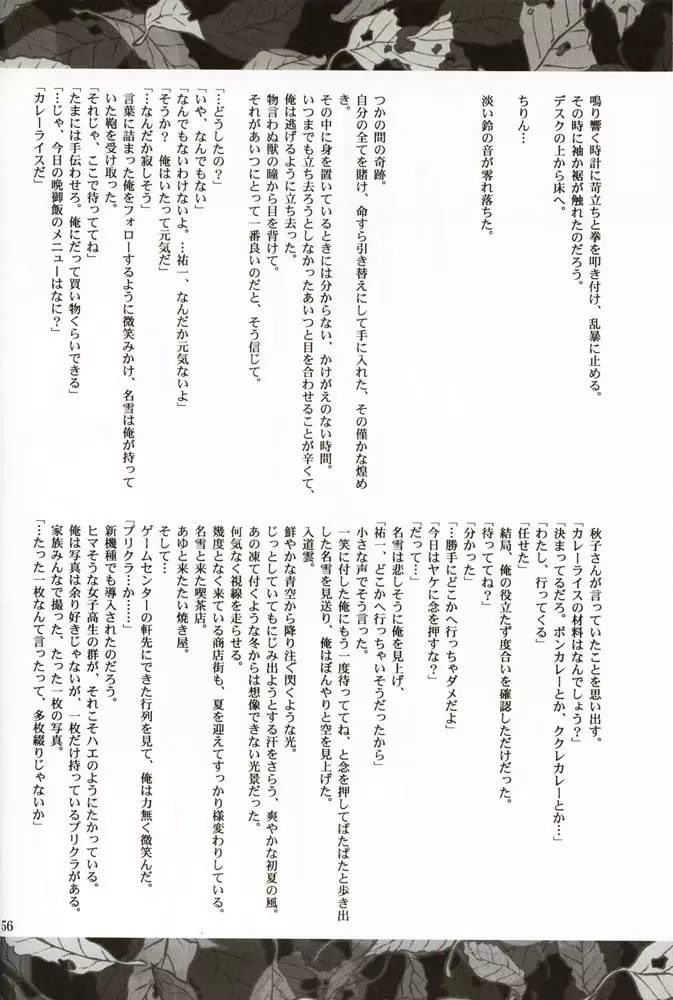 鳴り響く時計に苛立ちと拳を叩き付け、乱暴に止める。
その時に袖か裾が触れたのだろう。
デスクの上から床へ。
ちりん…
淡い鈴の音が零れ落ちた。
つかの間の奇跡。
自分の全てを賭け、命すら引き替えにして手に入れた、その僅かな煌め
き。
その中に身を置いているときには分からない、かけがえのない時間。
いつまでも立ち去ろうとしなかったあいつと目を合わせることが辛くて、
俺は逃げるように立ち去った。
物言わぬ獣の瞳から目を背けて。
それがあいつにとって一番良いのだと、そう信じて。
「…どうしたの？」
「いや、なんでもない」
「なんでもないわけないよ。…祐一、なんだか元気ないよ」
「そうか？　俺はいたって元気だ」
「…なんだか寂しそう」
言葉に詰まった俺をフォローするように微笑みかけ、名雪は俺が持って
いた鞄を受け取った。
「それじゃ、ここで待っててね」
「たまには手伝わせろ。俺にだって買い物くらいできる」
「…じゃ、今日の晩御飯のメニューはなに？」
「カレーライスだ」
秋子さんが言っていたことを思い出す。
「カレーライスの材料はなんでしょう？」
「決まってるだろ。ボンカレーとか、ククレカレーとか…」
「わたし、行ってくる」
「任せた」
結局、俺の役立たず度合いを確認しただけだった。
「待っててね？」
「分かった」
「…勝手にどこかへ行っちゃダメだよ」
「今日はヤケに念を押すな？」
「だって…」
名雪は悲しそうに俺を見上げ、
「祐一、どこかへ行っちゃいそうだったから」
小さな声でそう言った。
一笑に付した俺にもう一度待っててね、と念を押してぱたぱたと歩き出
した名雪を見送り、俺はぼんやりと空を見上げた。
入道雲。
鮮やかな青空から降り注ぐ閃くような光。
じっとしていてもにじみ出ようとする汗をさらう、爽やかな初夏の風。
あの凍て付くような冬からは想像できない光景だった。
何気なく視線を走らせる。
幾度となく来ている商店街も、夏を迎えてすっかり様変わりしている。
名雪と来た喫茶店。
あゆと来たたい焼き屋。
そして…
ゲームセンターの軒先にできた行列を見て、俺は力無く微笑んだ。
「プリクラ…か……」
新機種でも導入されたのだろう。
ヒマそうな女子高生の群が、それこそハエのようにたかっている。
俺は写真は余り好きじゃないが、一枚だけ持っているプリクラがある。
家族みんなで撮った、たった一枚の写真。
「…たった一枚なんて言ったって、多枚綴りじゃないか」
56